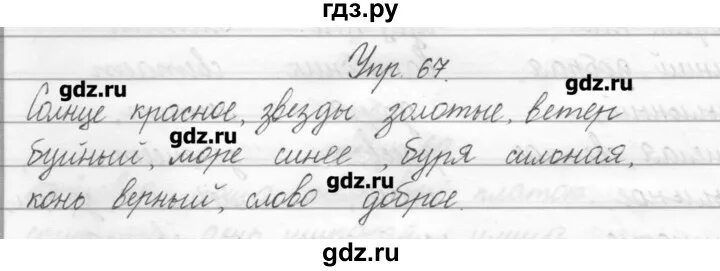 гдз.ру
Упр. 67.
gdz.ru gdz.ru
Солнце красное, звезды золотые, ветер
gdz.ru
буйный, море синее, буря сильная,
gdz.ru
конь верный, слово доброе.
gdz.ru